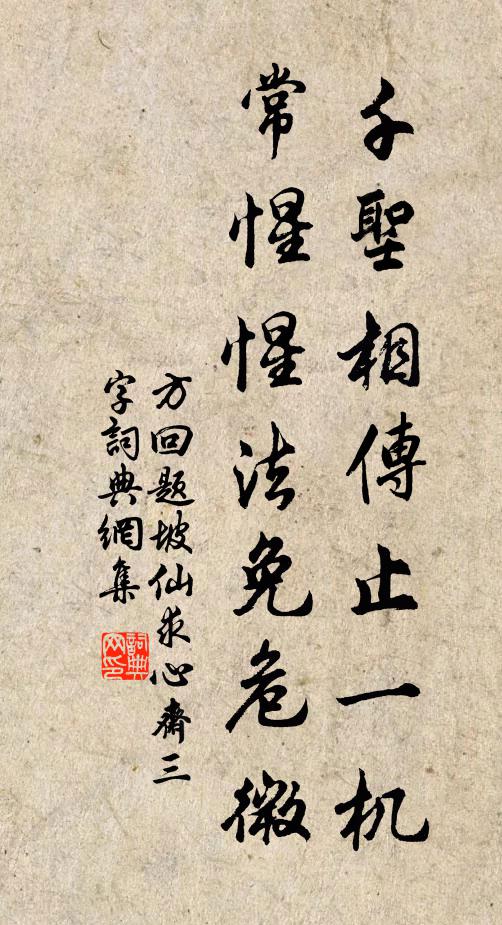 千聖相傳止一机
常惺惺法免危微
方回题坡仙求心齋三
字詞典網集
詞典網印